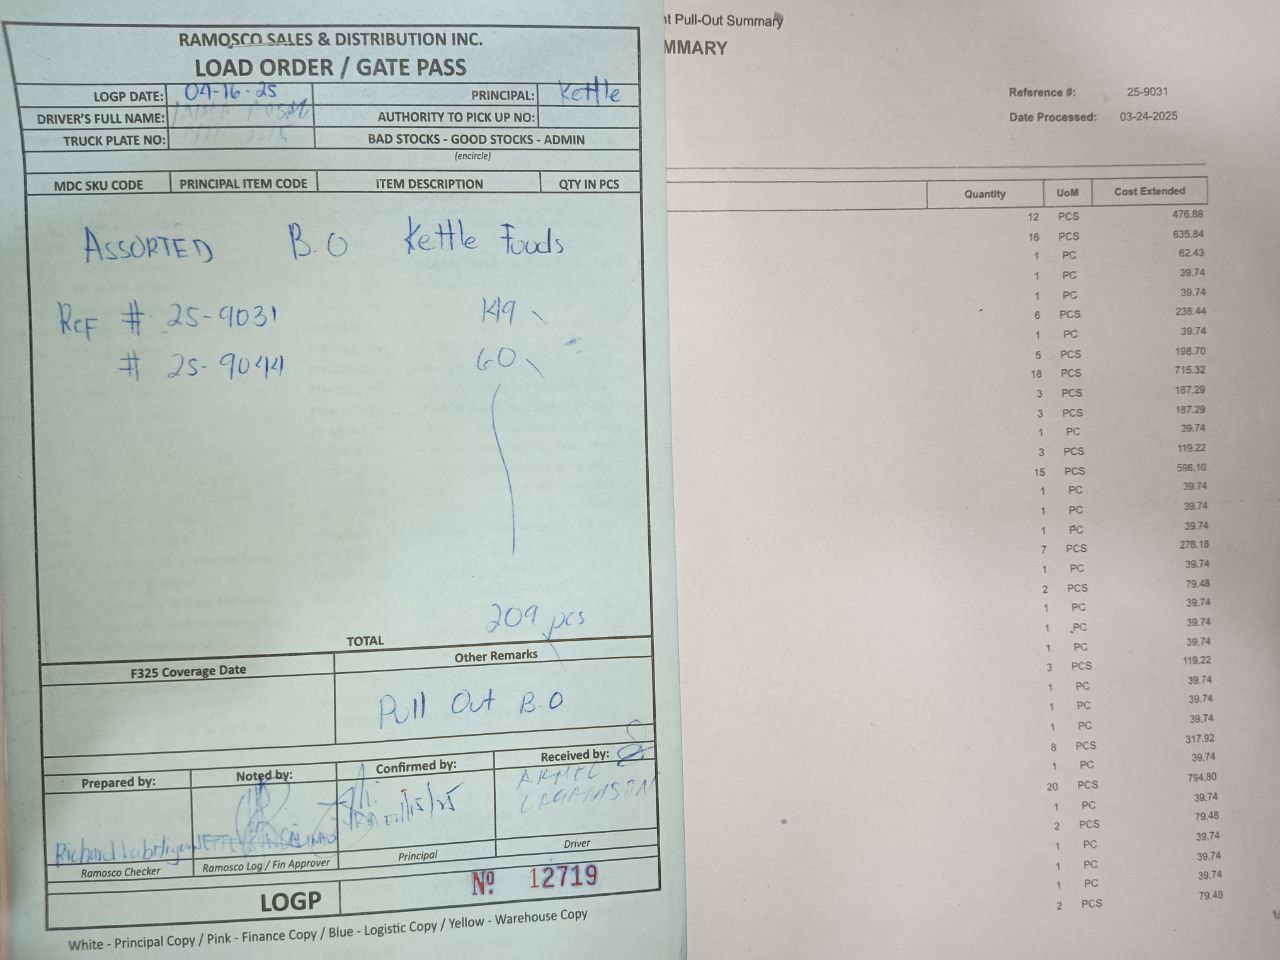 RAMOSCO SALES & DISTRIBUTION INC.
LOAD ORDER / GATE PASS
LOGP DATE: 04-16-25 PRINCIPAL: Kettle
DRIVER'S FULL NAME: AUTHORITY TO PICK UP NO:
TRUCK PLATE NO: BAD STOCKS - GOOD STOCKS - ADMIN
(encircle)
MDC SKU CODE PRINCIPAL ITEM CODE ITEM DESCRIPTION QTY IN PCS
ASSORTED B.O Kettle Foods
Ref # 25-9031 149
# 25-9044 60
209 pcs
TOTAL
F325 Coverage Date Other Remarks
Pull Out B.O
Prepared by: Noted by: Confirmed by: Received by:
Richard
Ramosco Checker Ramosco Log / Fin Approver Principal Driver
LOGP Nº 12719
White - Principal Copy / Pink - Finance Copy / Blue - Logistic Copy / Yellow - Warehouse Copy
Pull-Out Summary
MMARY
Reference #: 25-9031
Date Processed: 03-24-2025
Quantity UoM Cost Extended
12 PCS 476.88
16 PCS 635.84
1 PC 62.43
1 PC 39.74
1 PC 39.74
6 PCS 238.44
1 PC 39.74
5 PCS 198.70
18 PCS 715.32
3 PCS 187.29
3 PCS 187.29
1 PC 39.74
3 PCS 119.22
15 PCS 596.10
1 PC 39.74
1 PC 39.74
1 PC 39.74
7 PCS 278.18
1 PC 39.74
2 PCS 79.48
1 PC 39.74
1 PC 39.74
1 PC 39.74
3 PCS 119.22
1 PC 39.74
1 PC 39.74
1 PC 39.74
8 PCS 317.92
1 PC 39.74
20 PCS 794.80
1 PC 39.74
2 PCS 79.48
1 PC 39.74
1 PC 39.74
1 PC 39.74
2 PCS 79.48